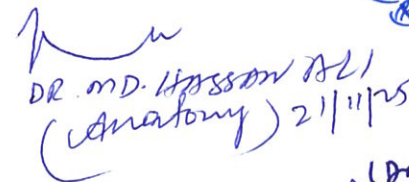 DR. MD. HASSAN ALI
(Anatomy) 21/11/25